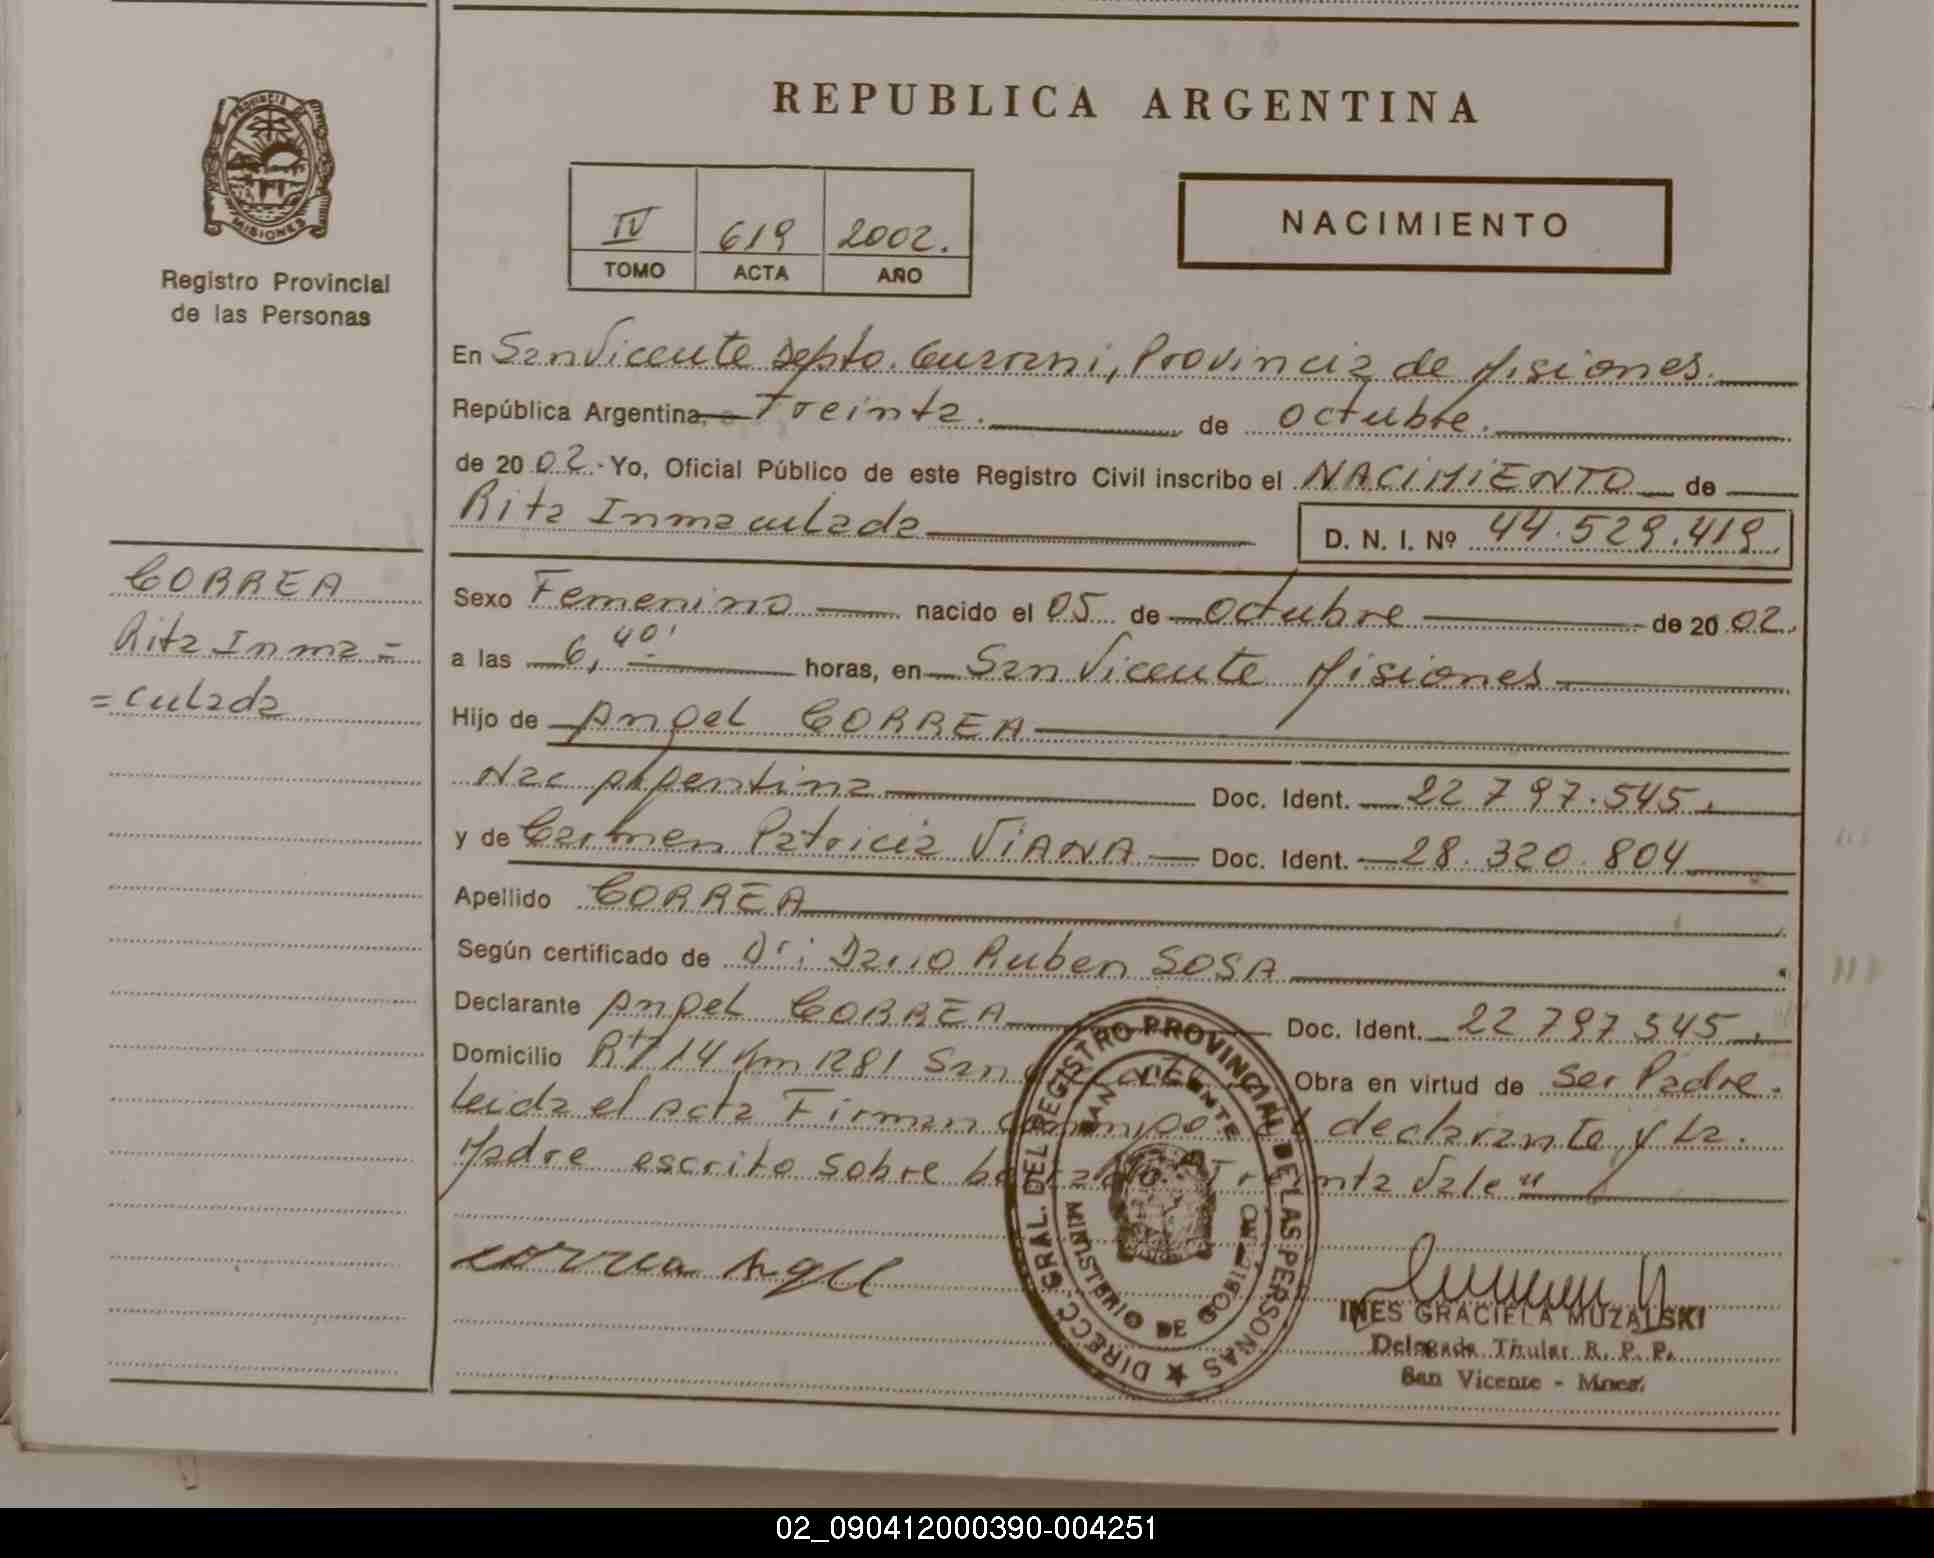 REPUBLICA ARGENTINA
PROVINCIA DE
MISIONES
Registro Provincial
de las Personas
IV 619 2002.
TOMO ACTA AÑO
NACIMIENTO
En San Vicente Depto. Guarani, Provincia de Misiones.
República Argentina, Treinta. de octubre.
de 2002. Yo, Oficial Público de este Registro Civil inscribo el NACIMIENTO de
Rita Inmaculada D. N. I. Nº 44.529.419.
CORREA
Rita Inma =
= culada
Sexo Femenino nacido el 05 de octubre de 2002.
a las 6,40' horas, en San Vicente Misiones
Hijo de Angel CORREA
Nac Argentina Doc. Ident. 22 797.545.
y de Carmen Patricia VIANA Doc. Ident. 28.320.804
Apellido CORREA
Según certificado de Dr: Dario Ruben SOSA
Declarante Angel CORREA Doc. Ident. 22 797 545.
Domicilio Rta 14 Km 1281 San Vicente Obra en virtud de Ser Padre.
Leida el Acta Firman conmigo el declarante y La.
Madre escrito sobre borrado "Treinta Vale"
Correa Angel
DIRECC. GRAL. DEL REGISTRO PROVINCIAL DE LAS PERSONAS ★
SAN VICENTE
MINISTERIO DE GOBIERNO
INES GRACIELA MUZALSKI
Delegada Titular R. P. P.
San Vicente - Mnes.
02_090412000390-004251